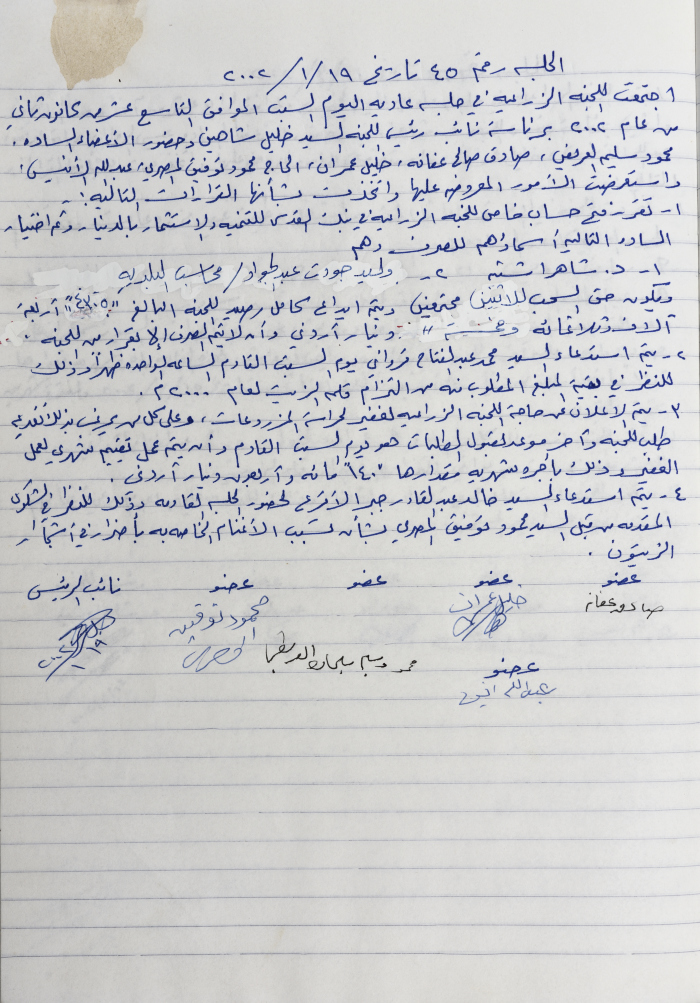 الجلسه رقم ٤٥ تاريخ ١٩/١/٢٠٠٢
اجتمعت اللجنه الزراعيه في جلسه عاديه اليوم السبت الموافق التاسع عشر من كانون ثاني
من عام ٢٠٠٢ برئاسة نائب رئيس اللجنه السيد خليل شاهين وحضور الأعضاء الساده.
محمود سليم العريض، صادق صالح عفانه، خليل عمران، الحاج محمود توفيق المصري، عبدالله الأنيس،
واستعرضت الأمور المعروضه عليها واتخذت بشأنها القرارات التاليه :-
١- تقرر فتح حساب خاص للجنه الزراعيه في بنك القدس للتنميه والاستثمار بالدينار وتم اختيار
الساده التاليه أسماؤهم للصرف وهم
١- د. شاهر اشتيه ٢- وليد جودت عبدالجواد/ محاسب البلديه
ويكون حق السحب للاثنين مجتمعين ويتم ايداع كامل رصيد اللجنه البالغ أربعة
آلاف وثلاثمائه وخمسة " دينار أردني وأن لا يتم الصرف إلا بقرار من اللجنه.
٢- يتم استدعاء السيد محمد عبدالفتاح قرواني يوم السبت القادم الساعه الواحده ظهراً وذلك
للنظر في بقية المبلغ المطلوب منه من التزام قلعه الزيت لعام ٢٠٠٠م.
٣- يتم الاعلان عن حاجة اللجنه الزراعيه لخفير لحراسة المزروعات، وعلى كل من يرغب بذلك تقديم
طلب للجنه وآخر موعد لقبول الطلبات هو يوم السبت القادم وأن يتم عمل تقييم شهري لعمل
الخفير وذلك بأجره شهريه مقدارها "١٤٠" مائه وأربعون دينار أردني.
٤- يتم استدعاء السيد خالد عبدالقادر جبر الأقرع لحضور الجلسه القادمه وذلك للنظر في الشكوى
المقدمه من قبل السيد محمود توفيق المصري بشأن تسبب الأغنام الخاصه به بأضرار في أشجار
الزيتون.
عضو عضو عضو عضو نائب الرئيس
صادق عفانه خليل عمران محمود توفيق المصري
١٩/١/٢٠٠٢
عضو